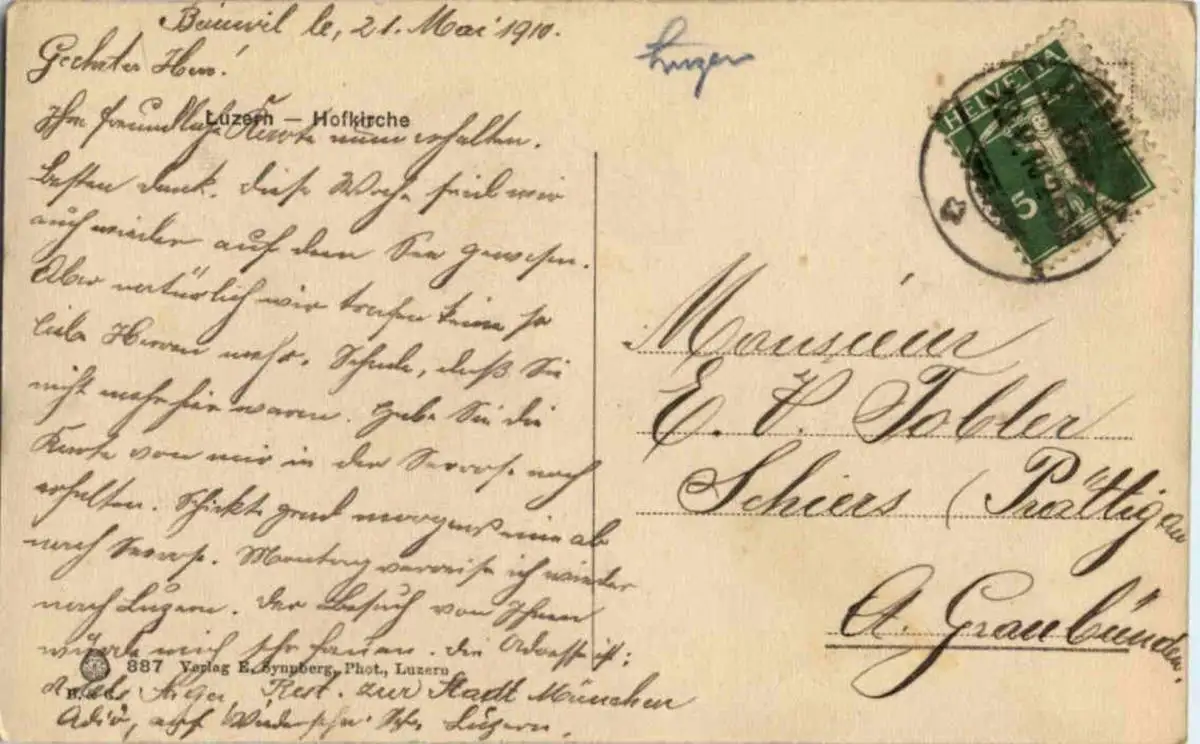 le, 21. Mai 1910.
Geehrter Herr!
Luzern — Hofkirche
Ihre freundliche Karte erhalten.
Besten Dank. Diese Woche sind wir
auch wieder auf dem See gewesen.
Aber natürlich wir trafen keine so
liebe Herren mehr. Schade, daß Sie
nicht mehr hier waren. Habe Sie die
Karte von mir in der noch
erhalten. Schickte grad morgens ab
nach Montag verreise ich wieder
nach Luzern. Der Besuch von Ihnen
würde mich sehr freuen. Die Adresse ist:
887 Verlag E. Synnberg, Phot., Luzern
Rest. zur Stadt München
Adiö, auf Wiedersehn Luzern.
Luzern
HELVETIA
5
Monsieur
E. V. Tobler
Schiers (Prättigau
A. Graubünden.